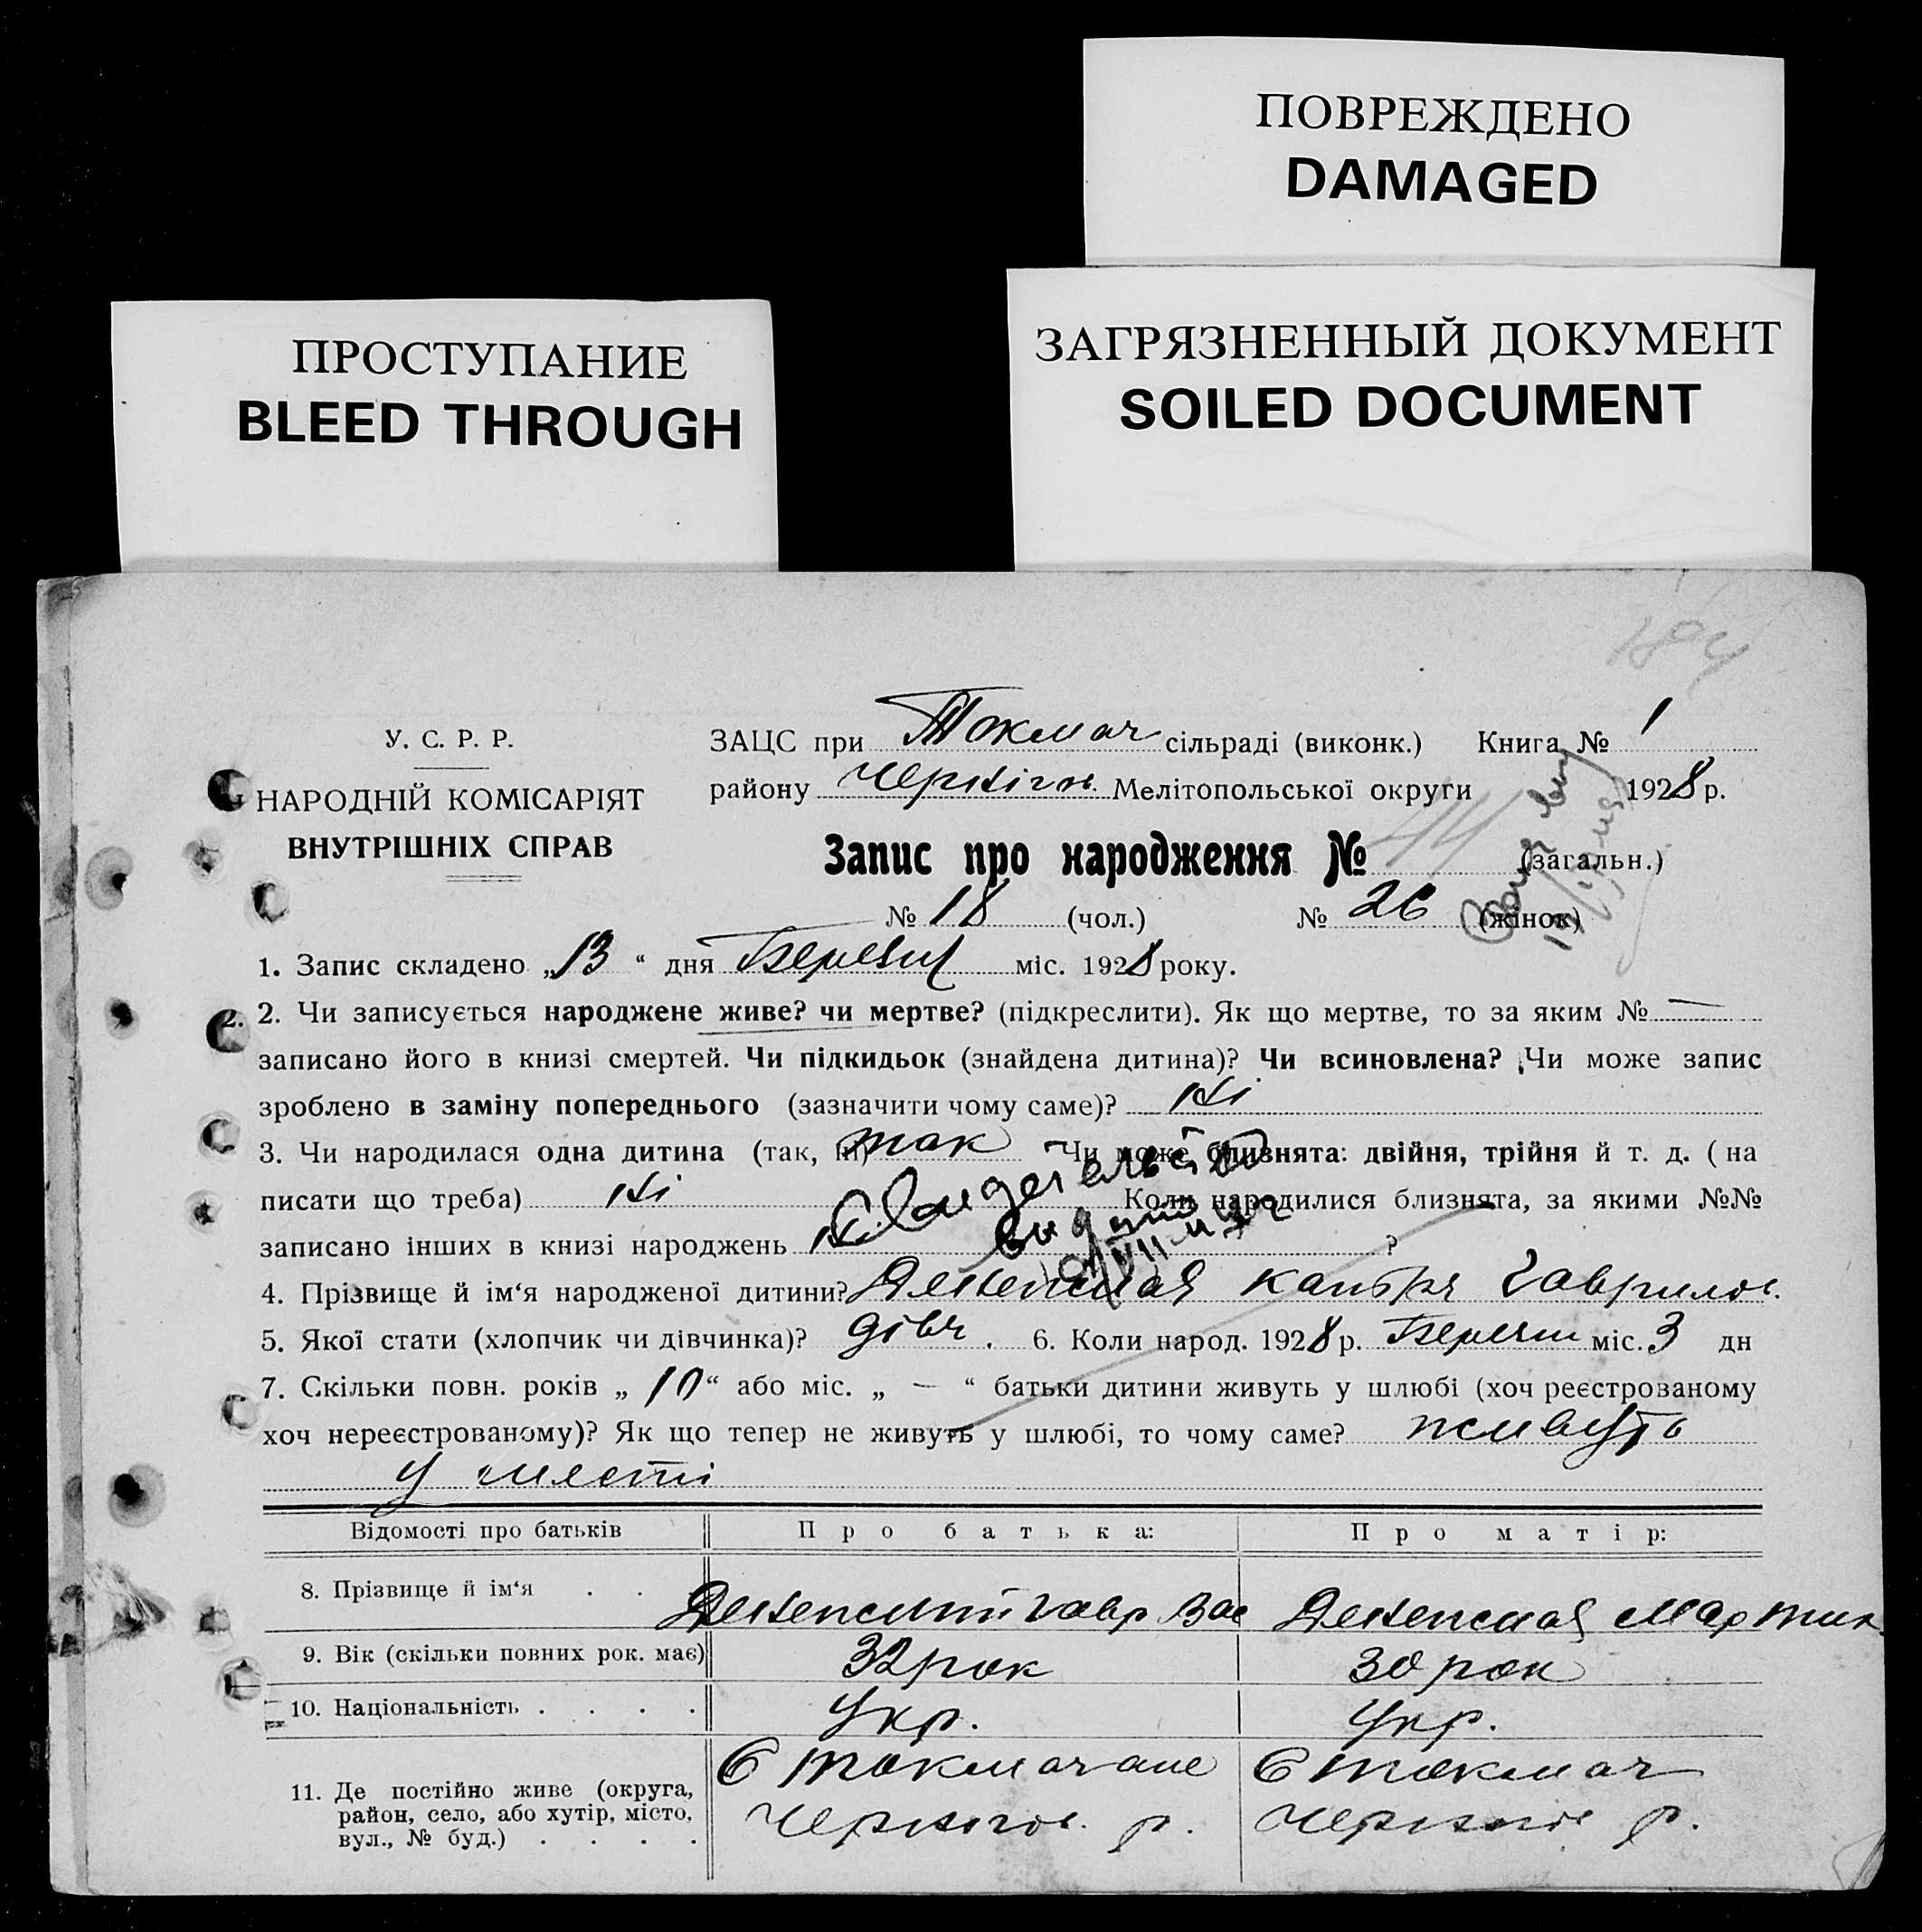 ПОВРЕЖДЕНО
DAMAGED
ПРОСТУПАНИЕ
BLEED THROUGH
ЗАГРЯЗНЕННЫЙ ДОКУМЕНТ
SOILED DOCUMENT
184
У. С. Р. Р.
НАРОДНІЙ КОМІСАРІЯТ
ВНУТРІШНІХ СПРАВ
ЗАЦС при Токмач сільраді (виконк.) Книга № 1
району Чернігов. Мелітопольської округи 1928 р.
Запис про народження № 44 (загальн.)
№ 18 (чол.) № 26 (жінок)
1. Запис складено „13“ дня Березня міс. 1928 року.
2. 2. Чи записується народжене живе? чи мертве? (підкреслити). Як що мертве, то за яким № —
записано його в книзі смертей. Чи підкидьок (знайдена дитина)? Чи всиновлена? Чи може запис
зроблено в заміну попереднього (зазначити чому саме)? Ні
3. Чи народилася одна дитина (так, ні) так Чи може близнята: двійня, трійня й т. д. (на
писати що треба) Ні Коли народилися близнята, за якими №№
записано інших в книзі народжень Ні ?
4. Прізвище й ім‘я народженої дитини? Гаврилов.
5. Якої стати (хлопчик чи дівчинка)? дівч. 6. Коли народ. 1928 р. міс. 3 дн
7. Скільки повн. років „10“ або міс. „ — “ батьки дитини живуть у шлюбі (хоч реєстрованому
хоч нереєстрованому)? Як що тепер не живуть у шлюбі, то чому саме? живуть
у
Відомості про батьків Про батька: Про матір:
8. Прізвище й ім‘я . . Гавр Вас
9. Вік (скільки повних рок. має) 32 рок 30 рок
10. Національність . . . . Укр. Укр.
11. Де постійно живе (округа, С С Токмач
район, село, або хутір, місто, Чернігов. р. Чернігов р.
вул., № буд.) . . . .